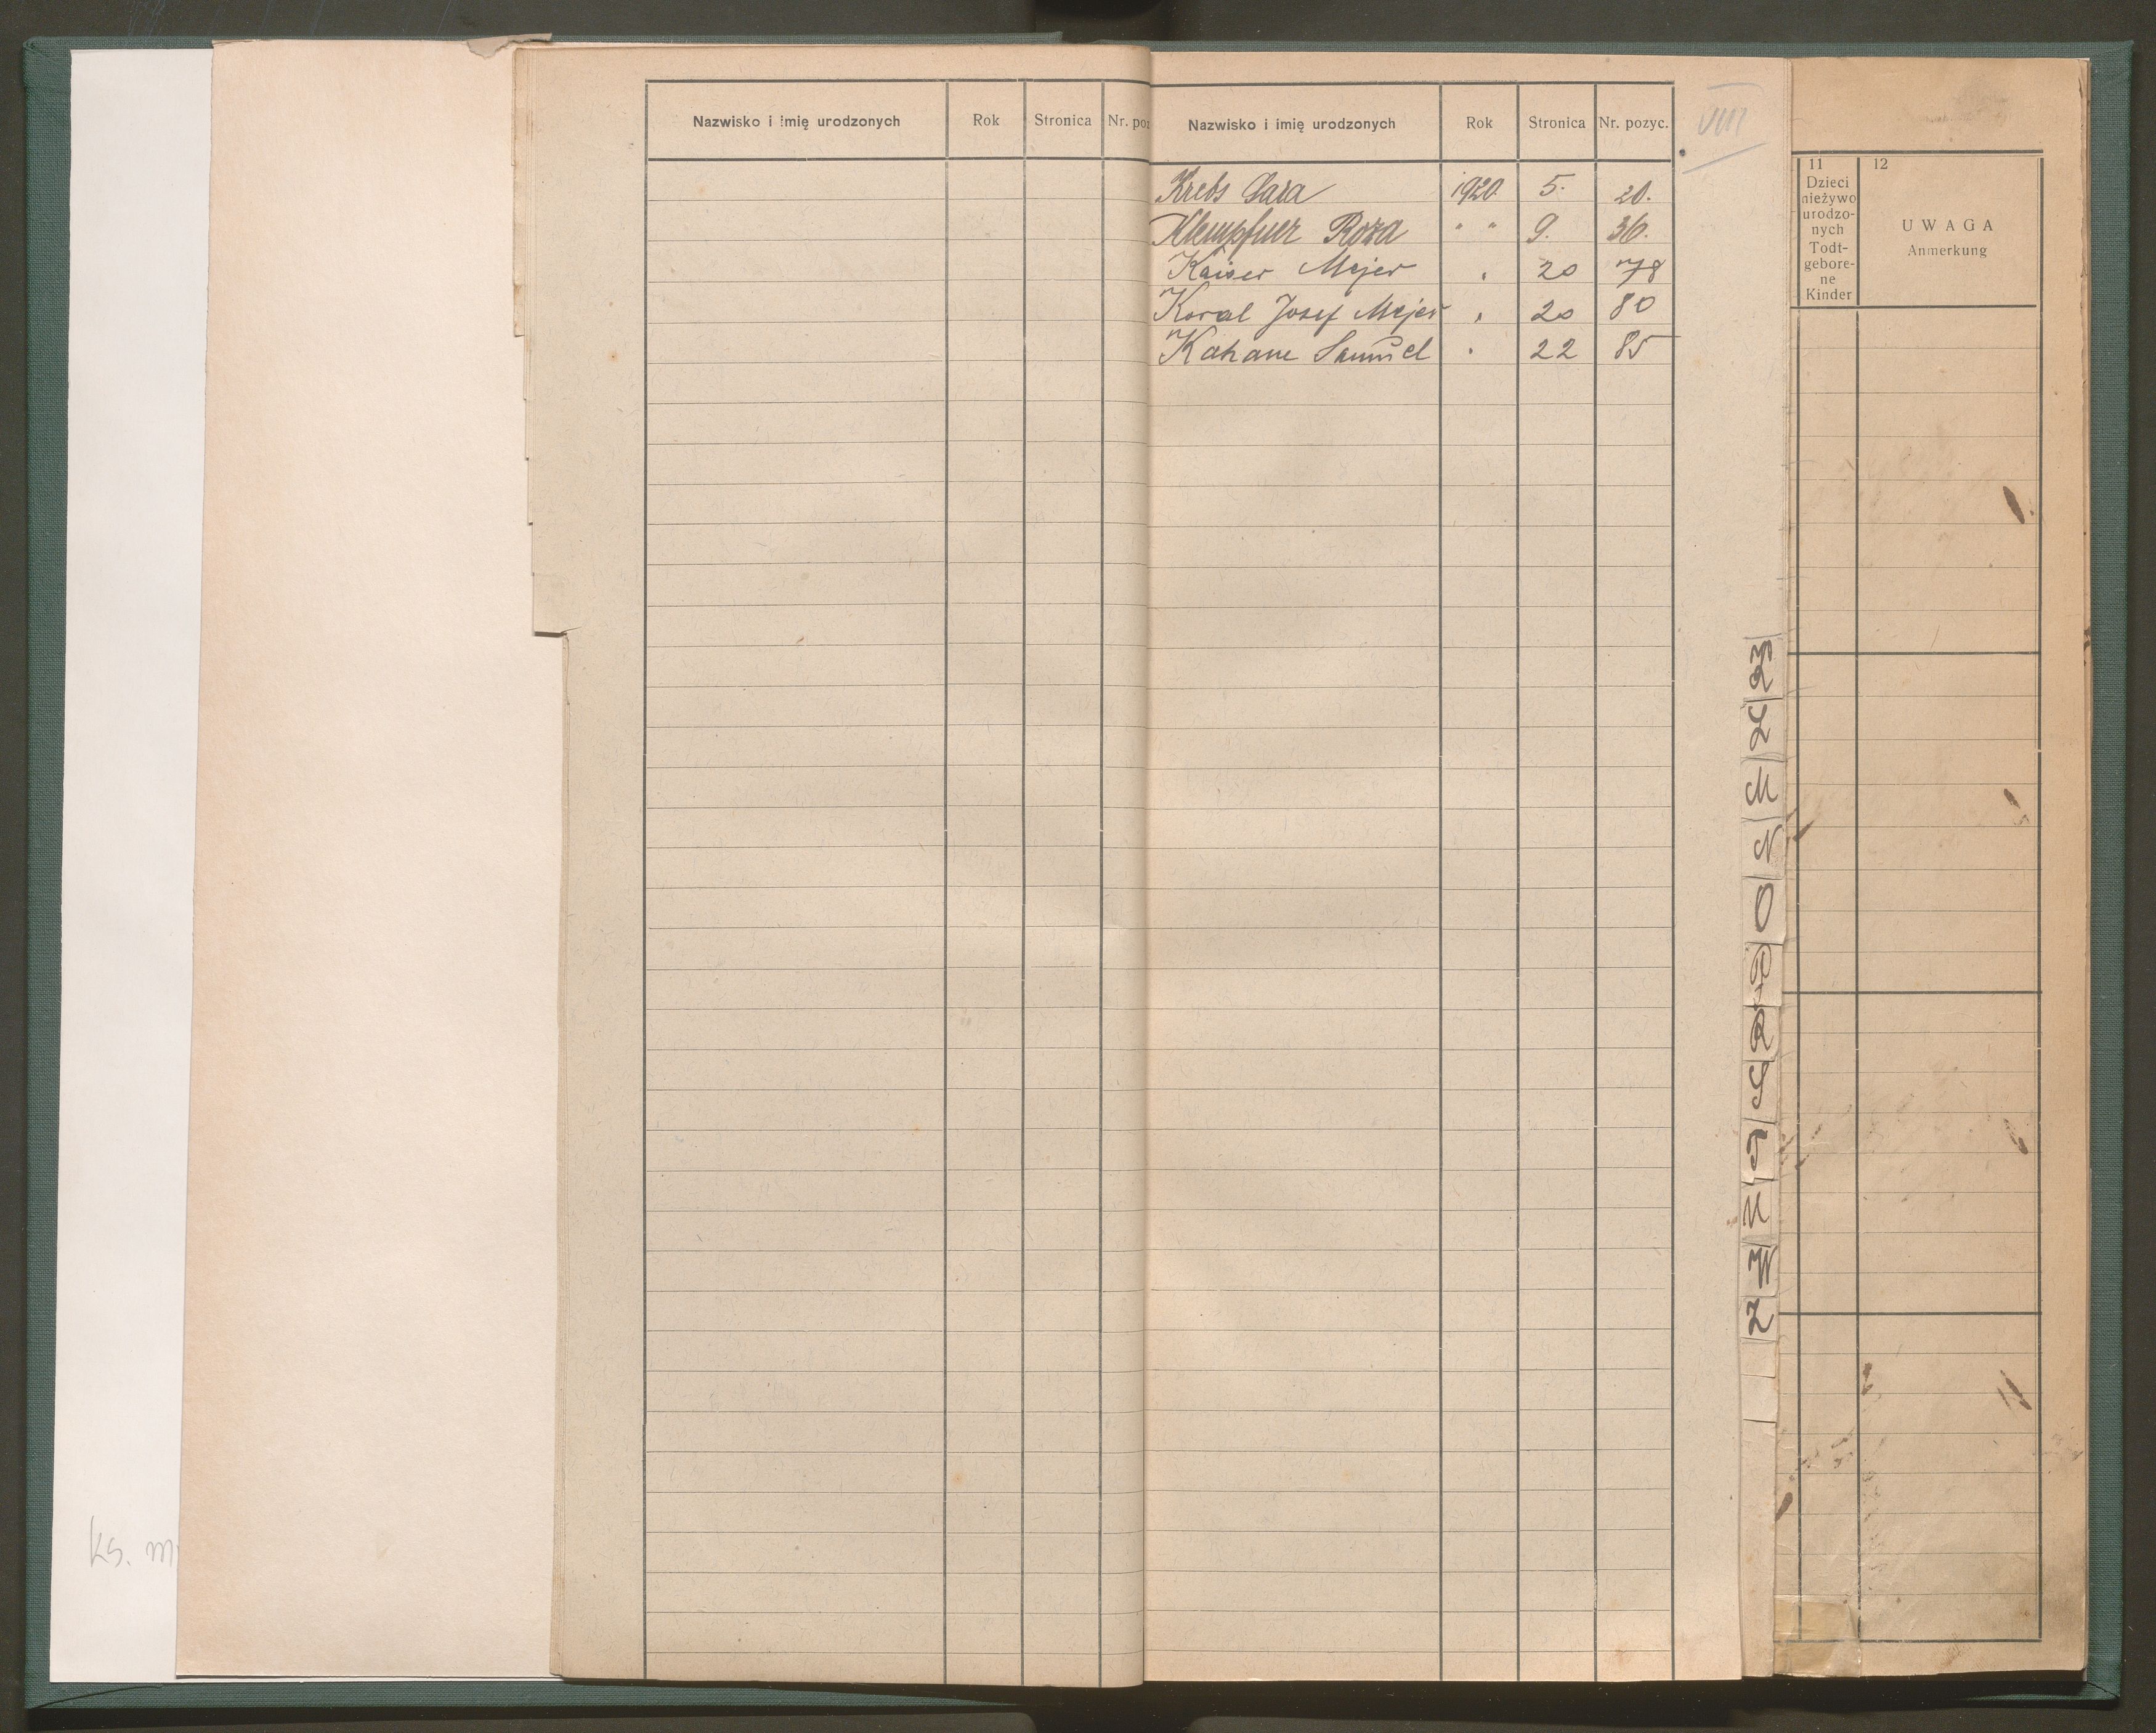 Nazwisko i imię urodzonych Rok Stronica Nr. poz
Nazwisko i imię urodzonych Rok Stronica Nr. pozyc.
VIII
Krebs Sara 1920. 5. 20.
Klempfner Roza " " 9. 36.
Kaiser Mejer " 20 78
Koral Josef Mejer " 20 80
Kahane Samuel " 22 85
11
Dzieci
nieżywo
urodzo-
nych
Todt-
gebore-
ne
Kinder
12
UWAGA
Anmerkung
M
N
O
P
R
S
T
U
W
Z
ks. m